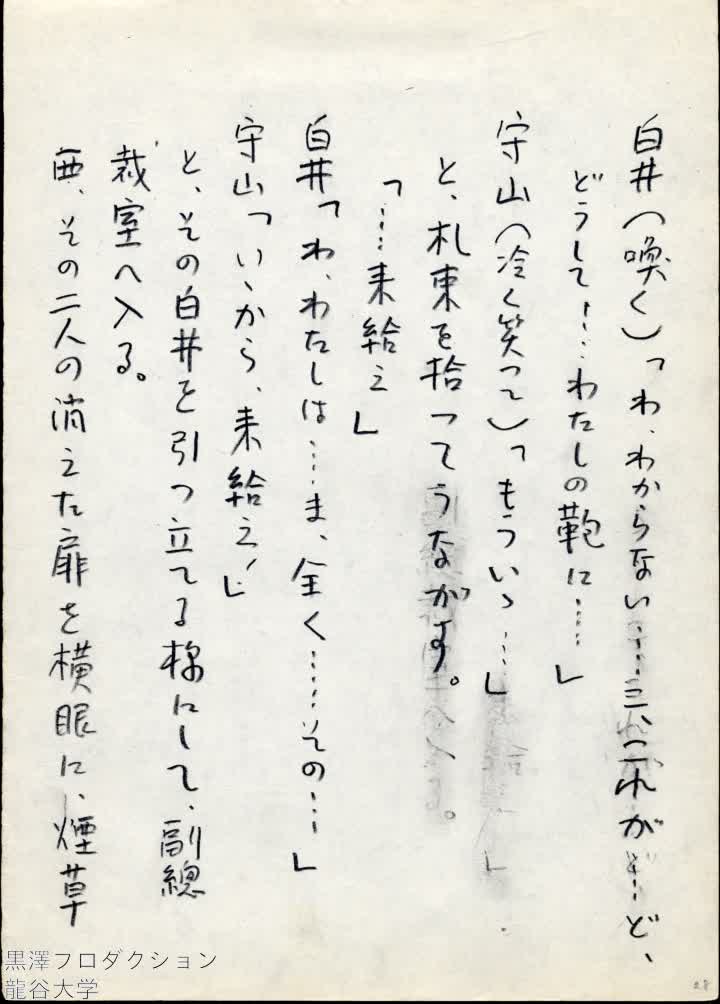 白井(喚く)「わ、わからない……こ、これが……ど、
どうして……わたしの鞄に……」
守山(冷く笑って)「もういゝ……」
と、札束を拾ってうながす。
「……来給え」
白井「わ、わたしは……ま、全く……その……」
守山「いゝから、来給え!」
と、その白井を引っ立てる様にして、副總
裁室へ入る。
西、その二人の消えた扉を横眼に、煙草
黒澤プロダクション
龍谷大学
28